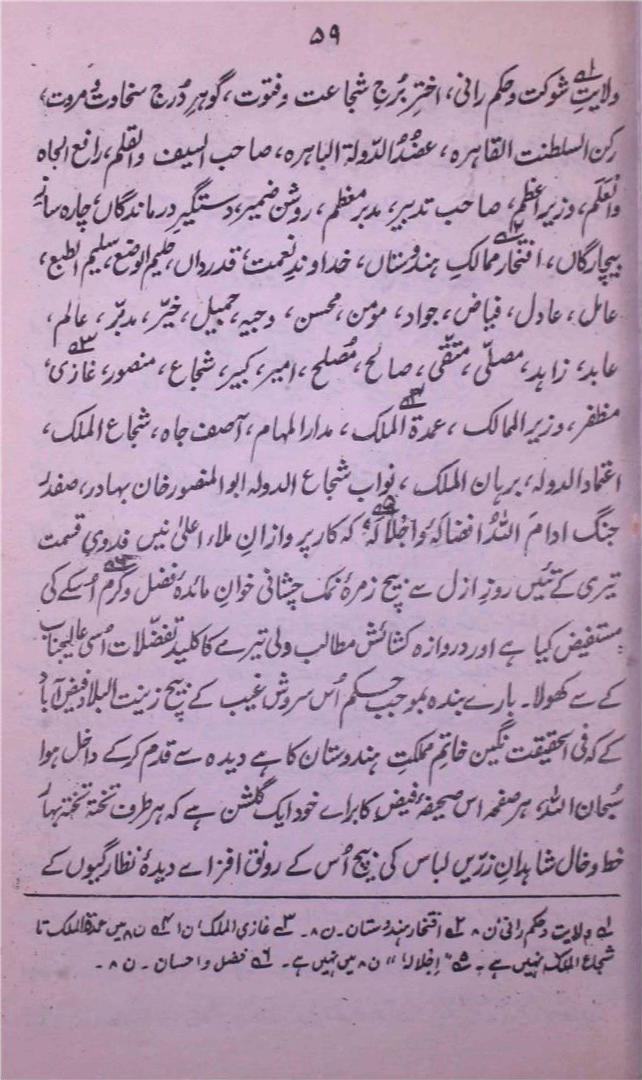 ۵۹
ولایتِ شوکت و حکم رانی، اخترِ بُرجِ شجاعت و فتوت، گوہرِ دُرجِ سخاوت و مروت،
رکن السلطنت القاہرہ، عضدُ الدّولۃ الباہرہ، صاحب السیف والقلم، رافع الجاہ
والعَلَم، وزیرِ اعظم، صاحب تدبیر، مدبر معظم، روشن ضمیر، دستگیرِ درماندگاں، چارہ سازِ
بیچارگاں، افتخارِ ممالکِ ہندوستاں، خداوندِ نعمت، قدرداں، حلیم الوضع، سلیم الطبع،
عامل، عادل، فیاض، جواد، مومن، محسن، وجیہ، جمیل، خیّر، مدبّر، عالم،
عابد، زاہد، مصلّی، متقی، صالح، مُصلح، امیر، کبیر، شجاع، منصور، غازی،
مظفر، وزیر الممالک، عمدۃ الملک، مدار المہام، آصف جاہ، شجاع الملک،
اعتماد الدولہ، برہان الملک، نواب شجاع الدولہ ابو المنصور خان بہادر، صفدر
جنگ ادامَ اللہُ افضالہُ و اجلالہُ، کہ کار پردازانِ ملاء اعلیٰ نیں فدوی قسمت
تیری کے تئیں روزِ ازل سے بیچ زمرۂ نمک چشانی خوانِ مائدۂ فضل و کرم اُسکے کی
مستفیض کیا ہے اور دروازہ کشائش مطالب ولی تیرے کا کلیدِ تفضّلات اُسی عالیجناب
کے سے کھولا۔ بارے بندہ بموجب حکم اُس سروش غیب کے بیچ زینت البلاد فیض آباد
کے کہ فی الحقیقت نگین خاتم مملکتِ ہندوستان کا ہے دیدہ سے قدم کرکے داخل ہوا
سُبحان اللہ، ہر صفحہ اس صحیفۂ فیض کا براے خود ایک گلشن ہے کہ ہر طرف تختہ تختہ بہار
خط و خال شاہدانِ زرّیں لباس کی بیچ اُس کے رونق افزاے دیدۂ نظارگیوں کے
۱؎ ولایت و حکم رانی، ن ۸ ۲؎ افتخار ہندوستان۔ ن ۸۔ ۳؎ غازی الملک، ن ۱ ۴؎ ن ۸ میں عمدۃ الملک تا
شجاع الملک نہیں ہے۔ ۵؎ "اجلالہ" ن ۸ میں نہیں ہے۔ ۶؎ فضل و احسان۔ ن ۸۔